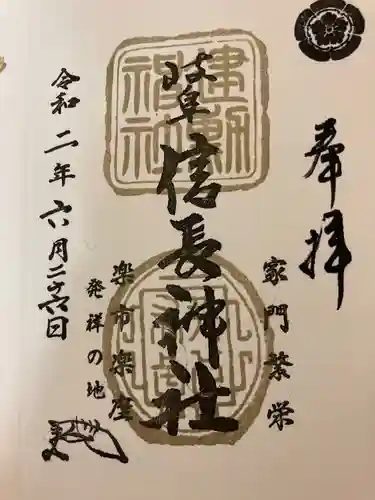 奉拝
家門繁栄
建勲神社
岐阜信長神社
楽市楽座
発祥の地
令和二年六月二十六日